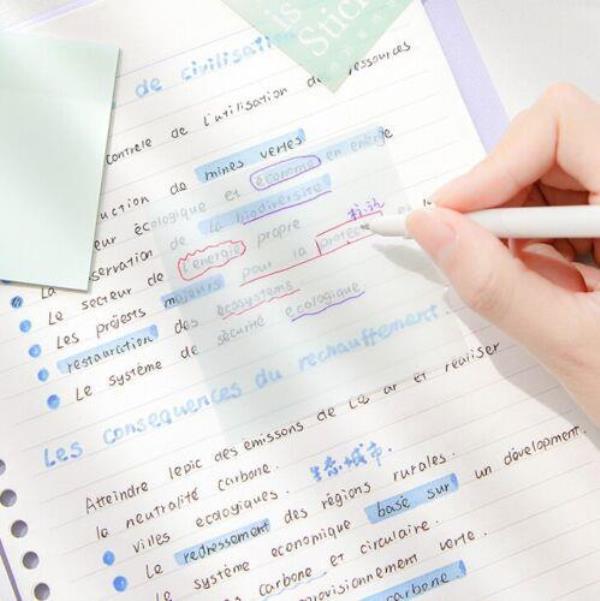 is
Stick
de civilisati
controle de l'utilisation de ressources
mines vertes
uction de
eur écologique et économie en energie
servation de la biodiversité
Le secteur de l'energie propre
Les projests majeurs pour la protec
标记
restauration des ecosystems
Le système de sécurité ecologique
Les consequences du rechauffement.
Atteindre lepic des émissons de ar et réaliser
la neutralité carbone.
生态城市.
villes ecologiques.
Le redressement des régions rurales.
Le système economique basé sur un dévelopment.
carbone et circulaire.
provisionnement verte.
carbone.